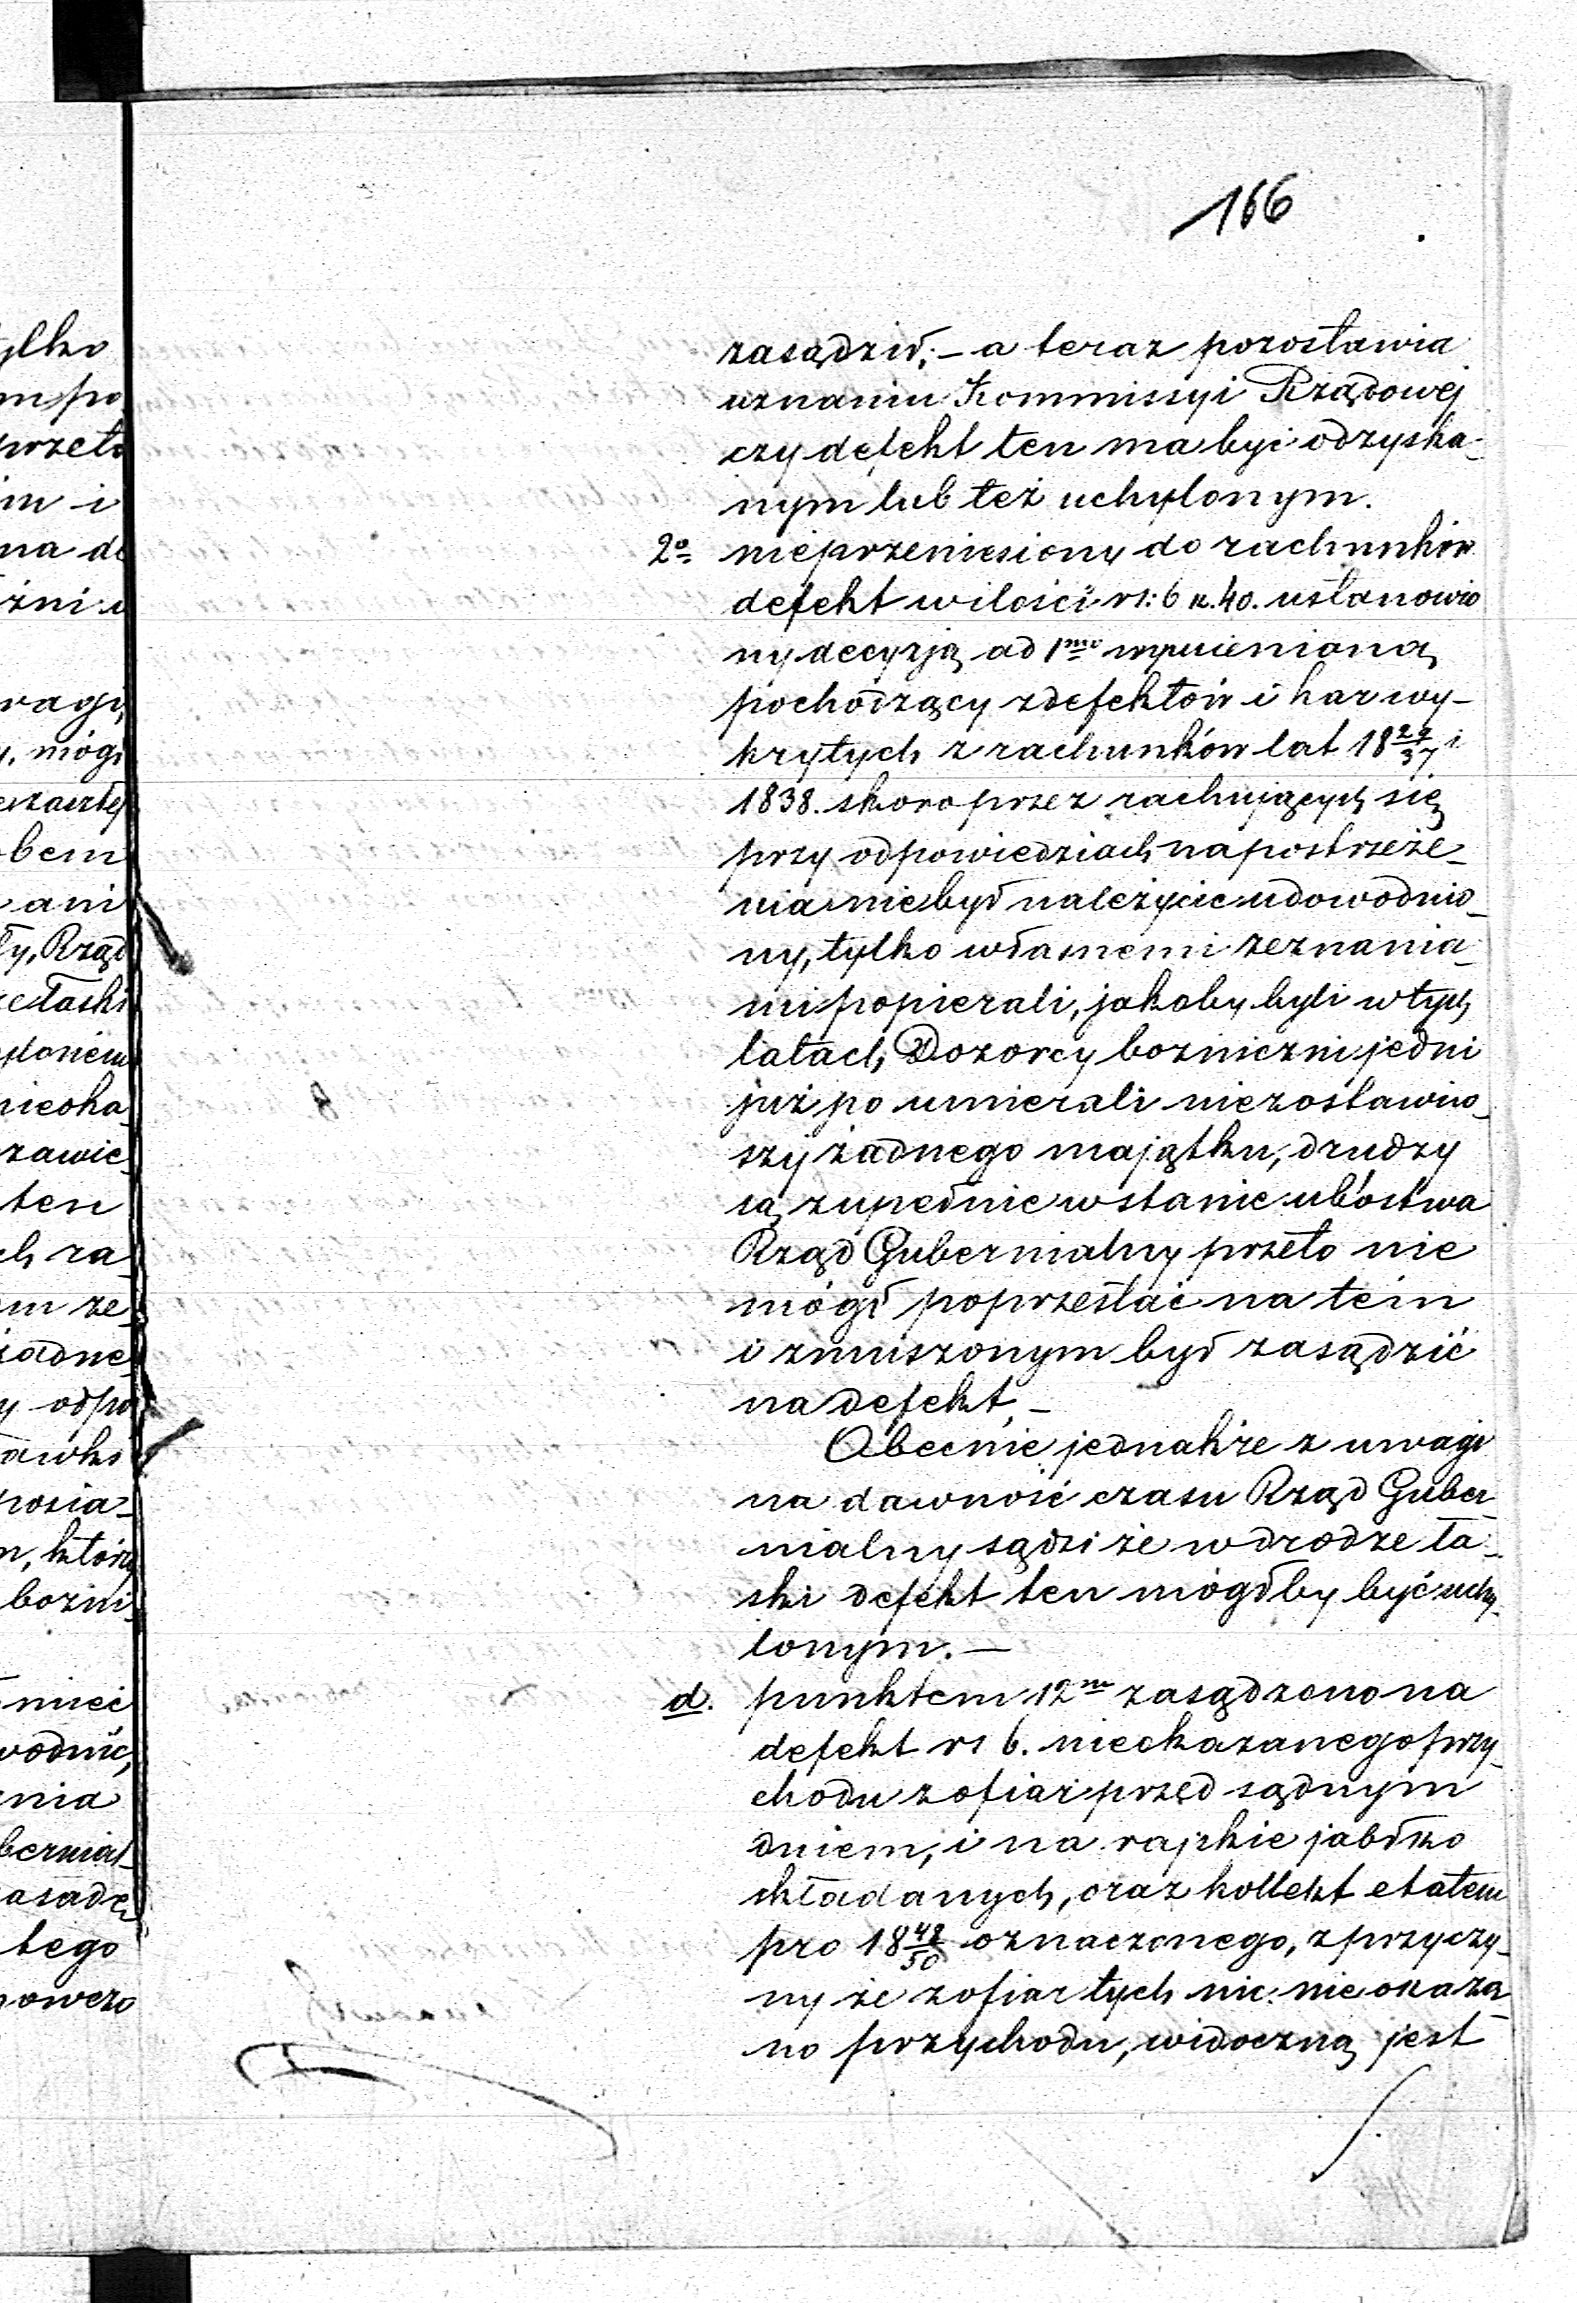 166
zasądził; – a teraz pozostawia
uznaniu Kommissyi Rządowej
czy defekt ten ma być odzyska-
nym lub też uchylonym.
2o nieprzeniesiony do rachunków
defekt wilości rs: 6 k. 40. ustanowio
ny decyzją ad 1mo wymienioną
pochodzący zdefektów i kar wy-
krytych z rachunków lat 18 29/37 i
1838. skoro przez rachujących się
przy odpowiedziach na postrzeże-
nia niebył należycie udowodnio-
ny, tylko własnemi zeznania-
mi popierali, jakoby byli w tych
latach Dozorcy bozniczni jedni
już po umierali niezostawiw-
szy żadnego majątku, drudzy
są zupełnie wstanie ubóstwa
Rząd Gubernialny przeto nie
mógł poprzestać na tém
i zmuszonym był zasądzić
na defekt, –
Obecnie jednakże z uwagi
na dawność czasu Rząd Guber-
nialny sądzi że wdrodze ła-
ski defekt ten mógłby być uchy-
lonym. –
d. punktem 12m zasądzono na
defekt rs 6. nieokazanego przy-
chodu zofiar przed sądnym
dniem, i na rajskie jabłko
składanych, oraz kollekt etatem
pro 18 48/50 oznaczonego, zprzyczy-
ny że zofiar tych nic nie okaza-
no przychodu, widoczną jest